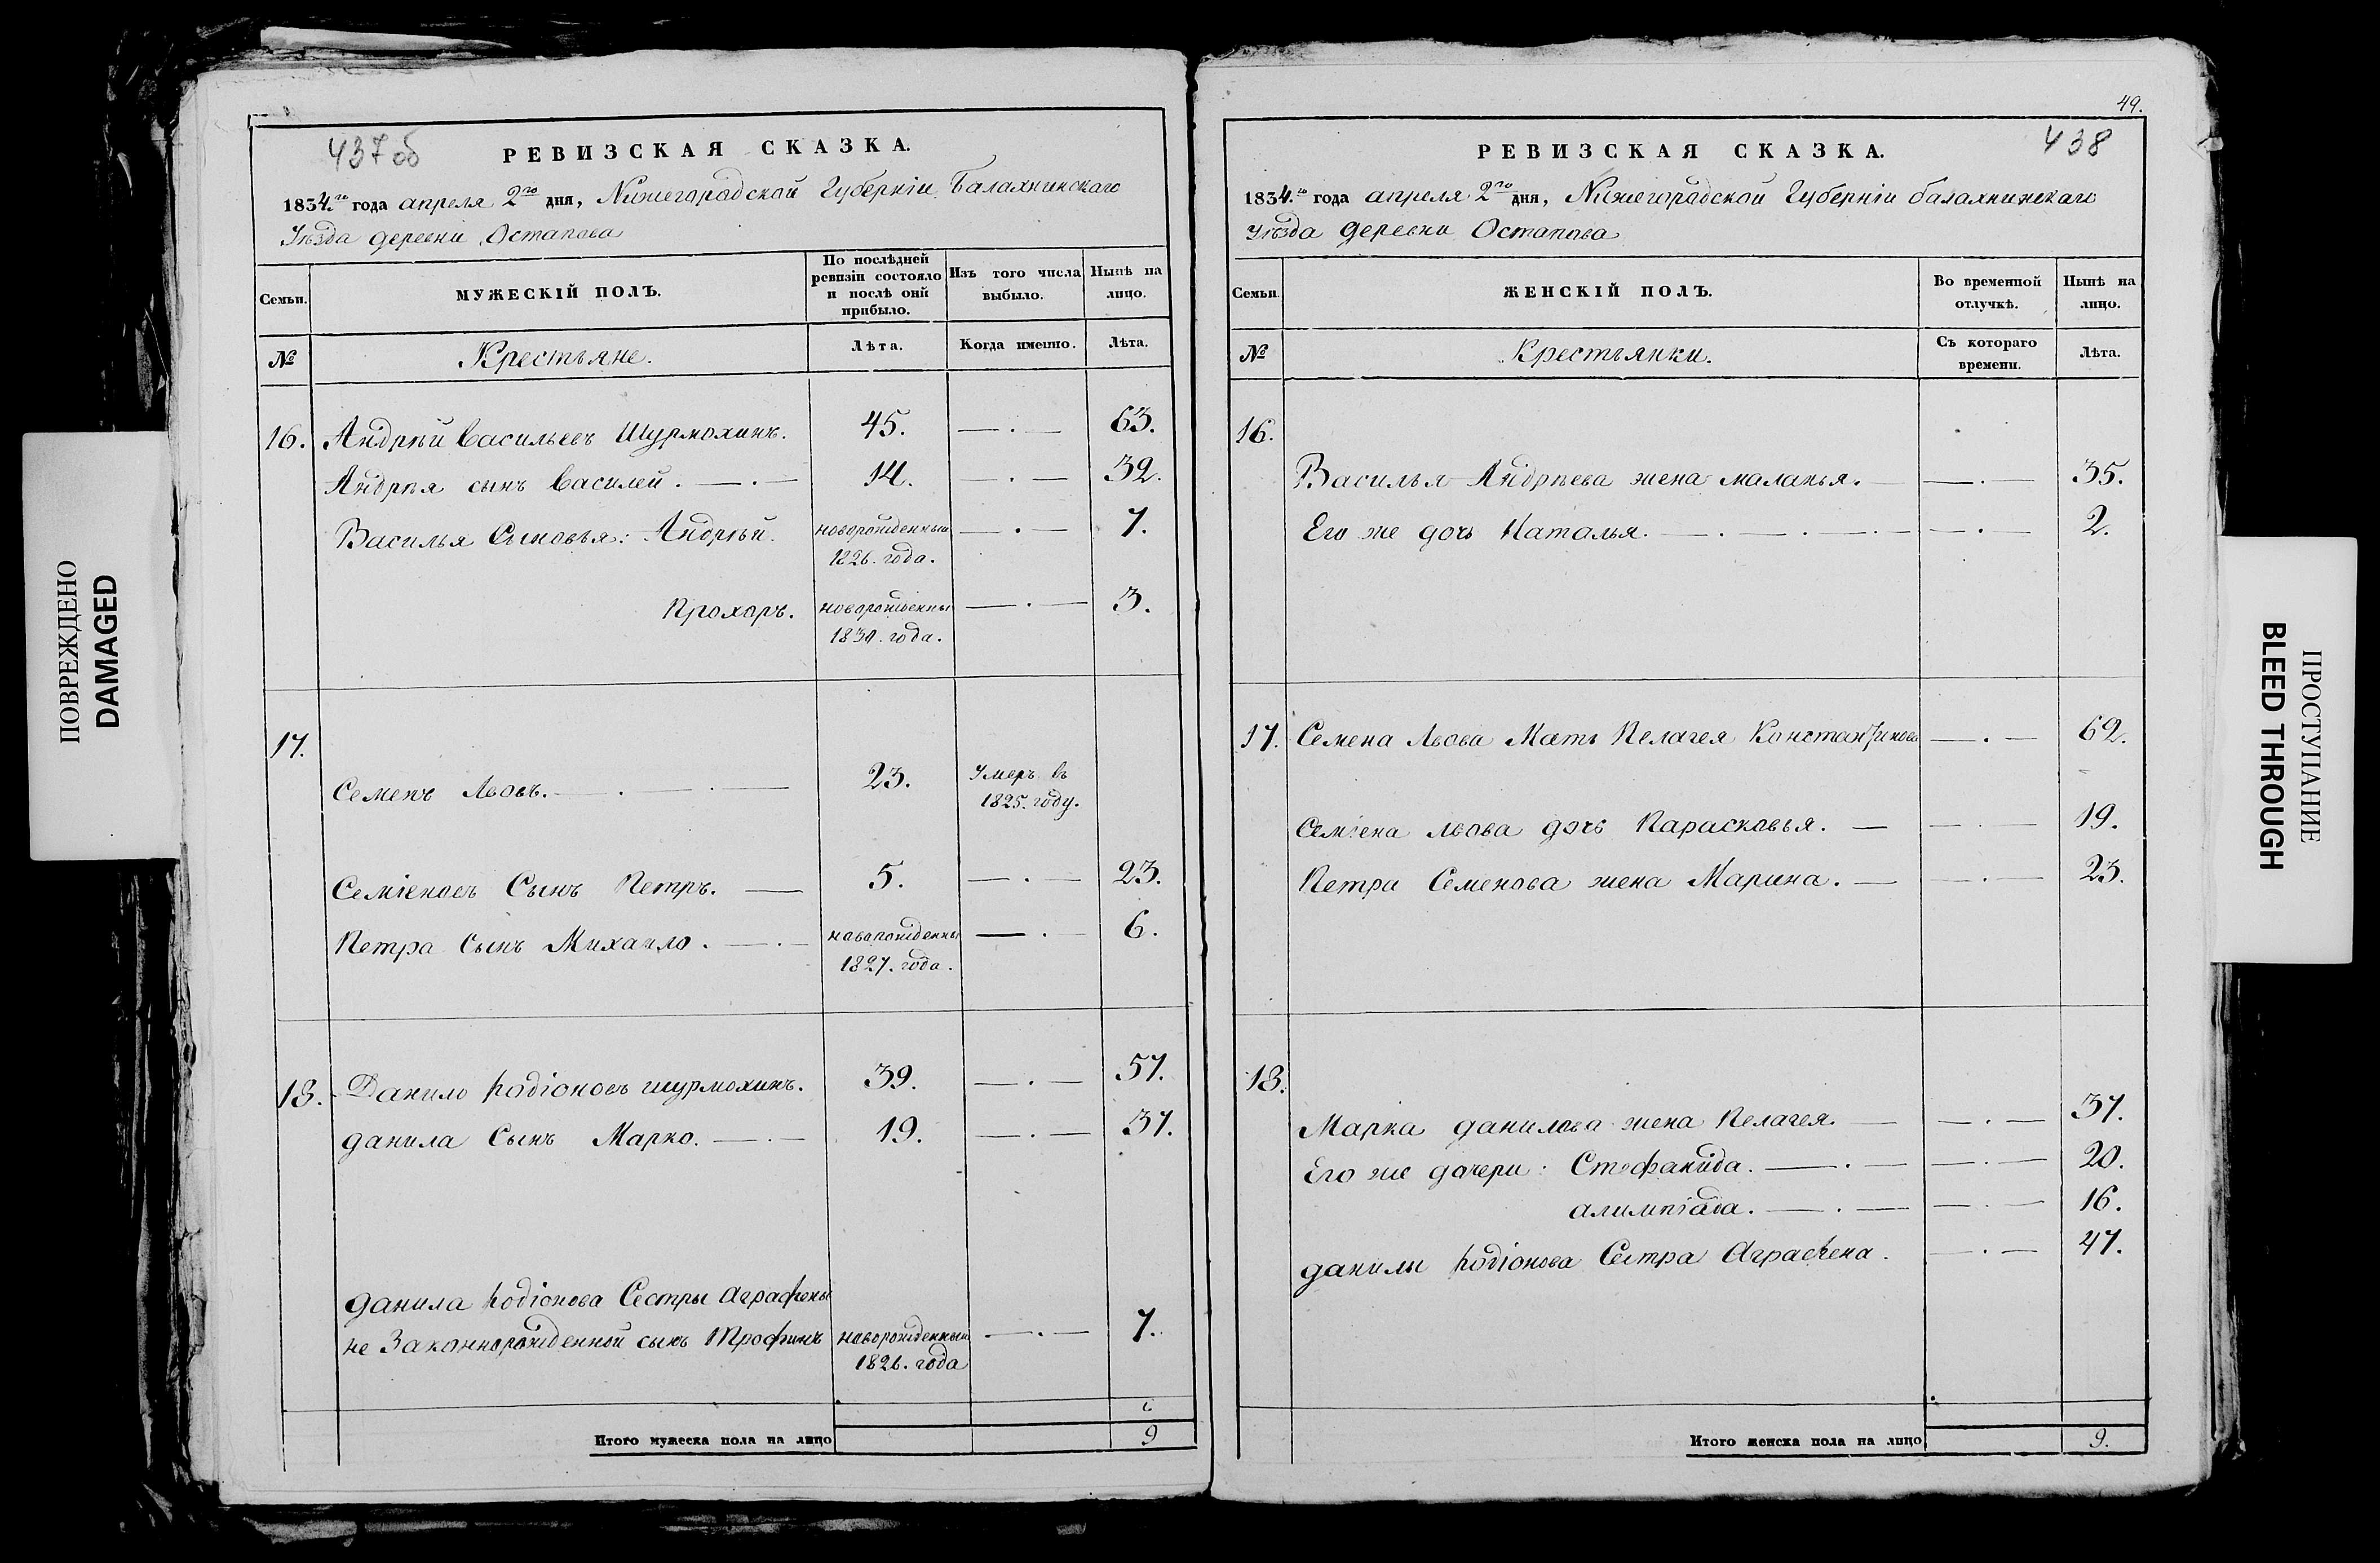 ПОВРЕЖДЕНО
DAMAGED
437 об
РЕВИЗСКАЯ СКАЗКА.
1834.го года апреля 2го дня, Нижегородской Губерніи Балахнинскаго
Уѣзда деревни Остапова
Семьи.
МУЖЕСКІЙ ПОЛЪ.
По послѣдней ревизіи состояло и послѣ оній прибыло.
Изъ того числа выбыло.
Нынѣ на лицо.
№
Крестьяне.
Лѣта.
Когда именно.
Лѣта.
16. Андрѣй Васильевъ Шурмохинъ. 45. — . — 63.
Андрѣя сынъ Василей. — . — 14. — . — 32.
Василья Сыновья: Андрѣй. новорожденный — . — 7.
1826. года.
Прохоръ. новорожденны — . — 3.
1830. года.
17.
Семенъ Львовъ. — . — . — 23. Умеръ въ
1825. году.
Семіеновъ Сынъ Петръ. — 5. — . — 23.
Петра Сынъ Михаило. — . — новорожденны — . — 6.
1827. года.
18. Данило Родіоновъ шурмохинъ. 39. — . — 57.
данила Сынъ Марко. — . — 19. — . — 37.
данила Родіонова Сестры Аграфены
не Законнорожденной сынъ Трофимъ новорожденный — . — 7.
1826. года
Итого мужеска пола на лицо 9
49.
438
РЕВИЗСКАЯ СКАЗКА.
1834.го года апреля 2го дня, Нижегородской Губерніи балахнинскаго
уѣзда деревни Остапова
Семьи.
ЖЕНСКІЙ ПОЛЪ.
Во временной отлучкѣ.
Нынѣ на лицо.
№
Крестьянки.
Съ котораго времени.
Лѣта.
16.
Василья Андрѣева жена маланья. — — . — 35.
Его же дочь Наталья. — . — . — . — — . — 2.
17. Семена Львова Мать Пелагея Константинова — . — 62.
Семіена львова дочь Парасковья. — — . — 19.
Петра Семенова жена Марина. — — . — 23.
18.
Марка данилова жена Пелагея. — — . — 37.
Его же дочери: Стефанида. — . — — . — 20.
алимпіада. — . — — . — 16.
данилы Родіонова Сестра Аграфена. — . — 47.
Итого женска пола на лицо 9.
ПРОСТУПАНИЕ
BLEED THROUGH